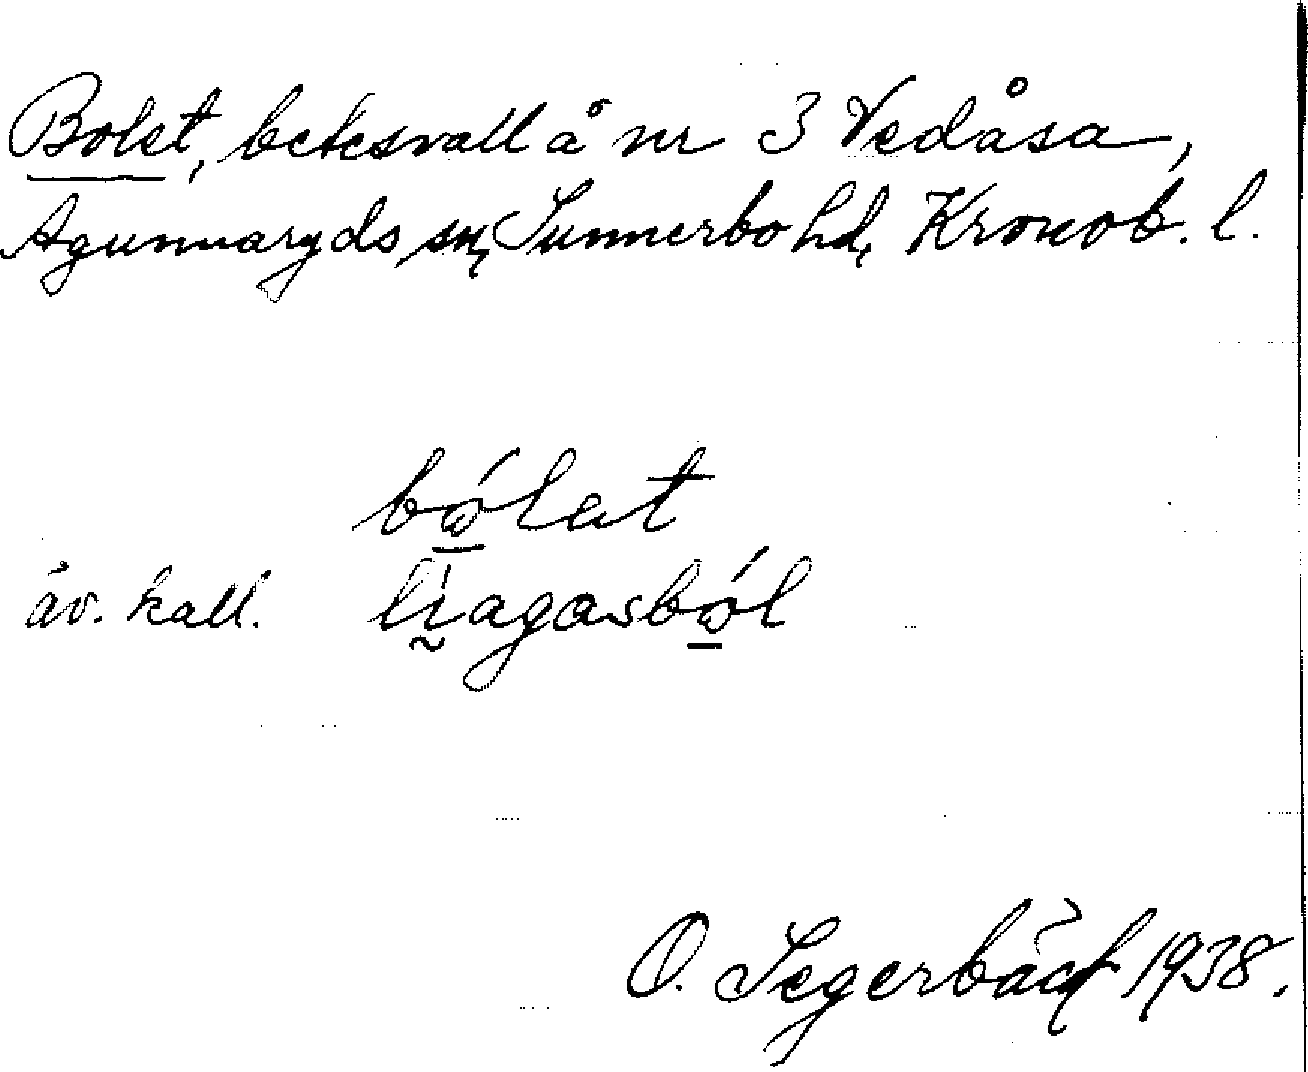 Bolet, betesvall å nr 3 Vedåsa,
Agunnaryds sn, Sunnerbo hd, Kronob. l.
bólat
äv. kall. lı̰agasból
O. Segerbäck 1938.